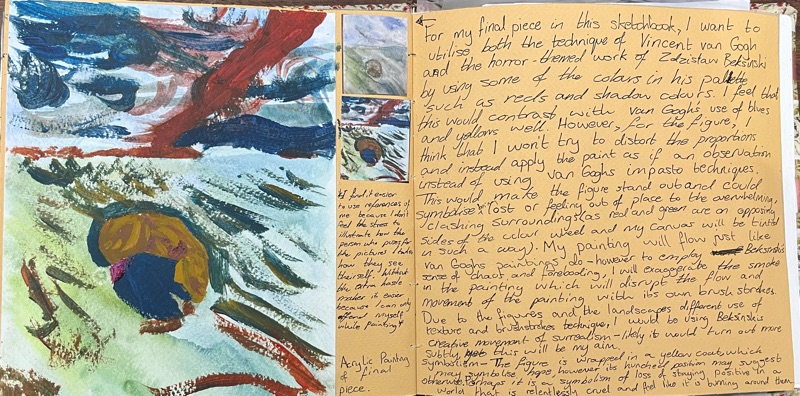 *I find it easier
to use references of
me because I don't
feel the stress to
illustrate how the
person who posed for
the pictures I take
how they see
theirself. Without
the extra hassle
makes it easier
because I can only
offend myself
while painting*
Acrylic Painting
of final
piece.
For my final piece in this sketchbook, I want to
utilise both the technique of Vincent van Gogh
and the horror-themed work of Zdzislaw Beksinski
by using some of the colours in his palette
such as reds and shadow colours. I feel that
this would contrast with Van Gogh's use of blues
and yellows well. However, for the figure, I
think that I won't try to distort the proportions
and instead apply the paint as if an observation
instead of using van Goghs impasto techniques.
This would make the figure stand out and could
symbolise lost or feeling out of place to the overwhelming,
clashing surroundings (as red and green are on opposing
sides of the colour wheel and my canvas will be tinted
in such a way). My painting will flow just like
Van Goghs paintings do - however to employ Beksinskis
sense of chaos and foreboding, I will exaggerate the smoke
in the painting which will disrupt the flow and
movement of the painting with its own brush strokes.
Due to the figures and the landscapes different use of
texture and brushstrokes technique, I would be using Beksinskis
creative movement of surrealism - likely it would turn out more
subtly, this will be my aim.
Symbolism - The figure is wrapped in a yellow coat which
may symbolise hope, however its hunched position may suggest
otherwise. Perhaps it is a symbolism of loss of staying positive in a
world that is relentlessly cruel and feel like it is burning around them